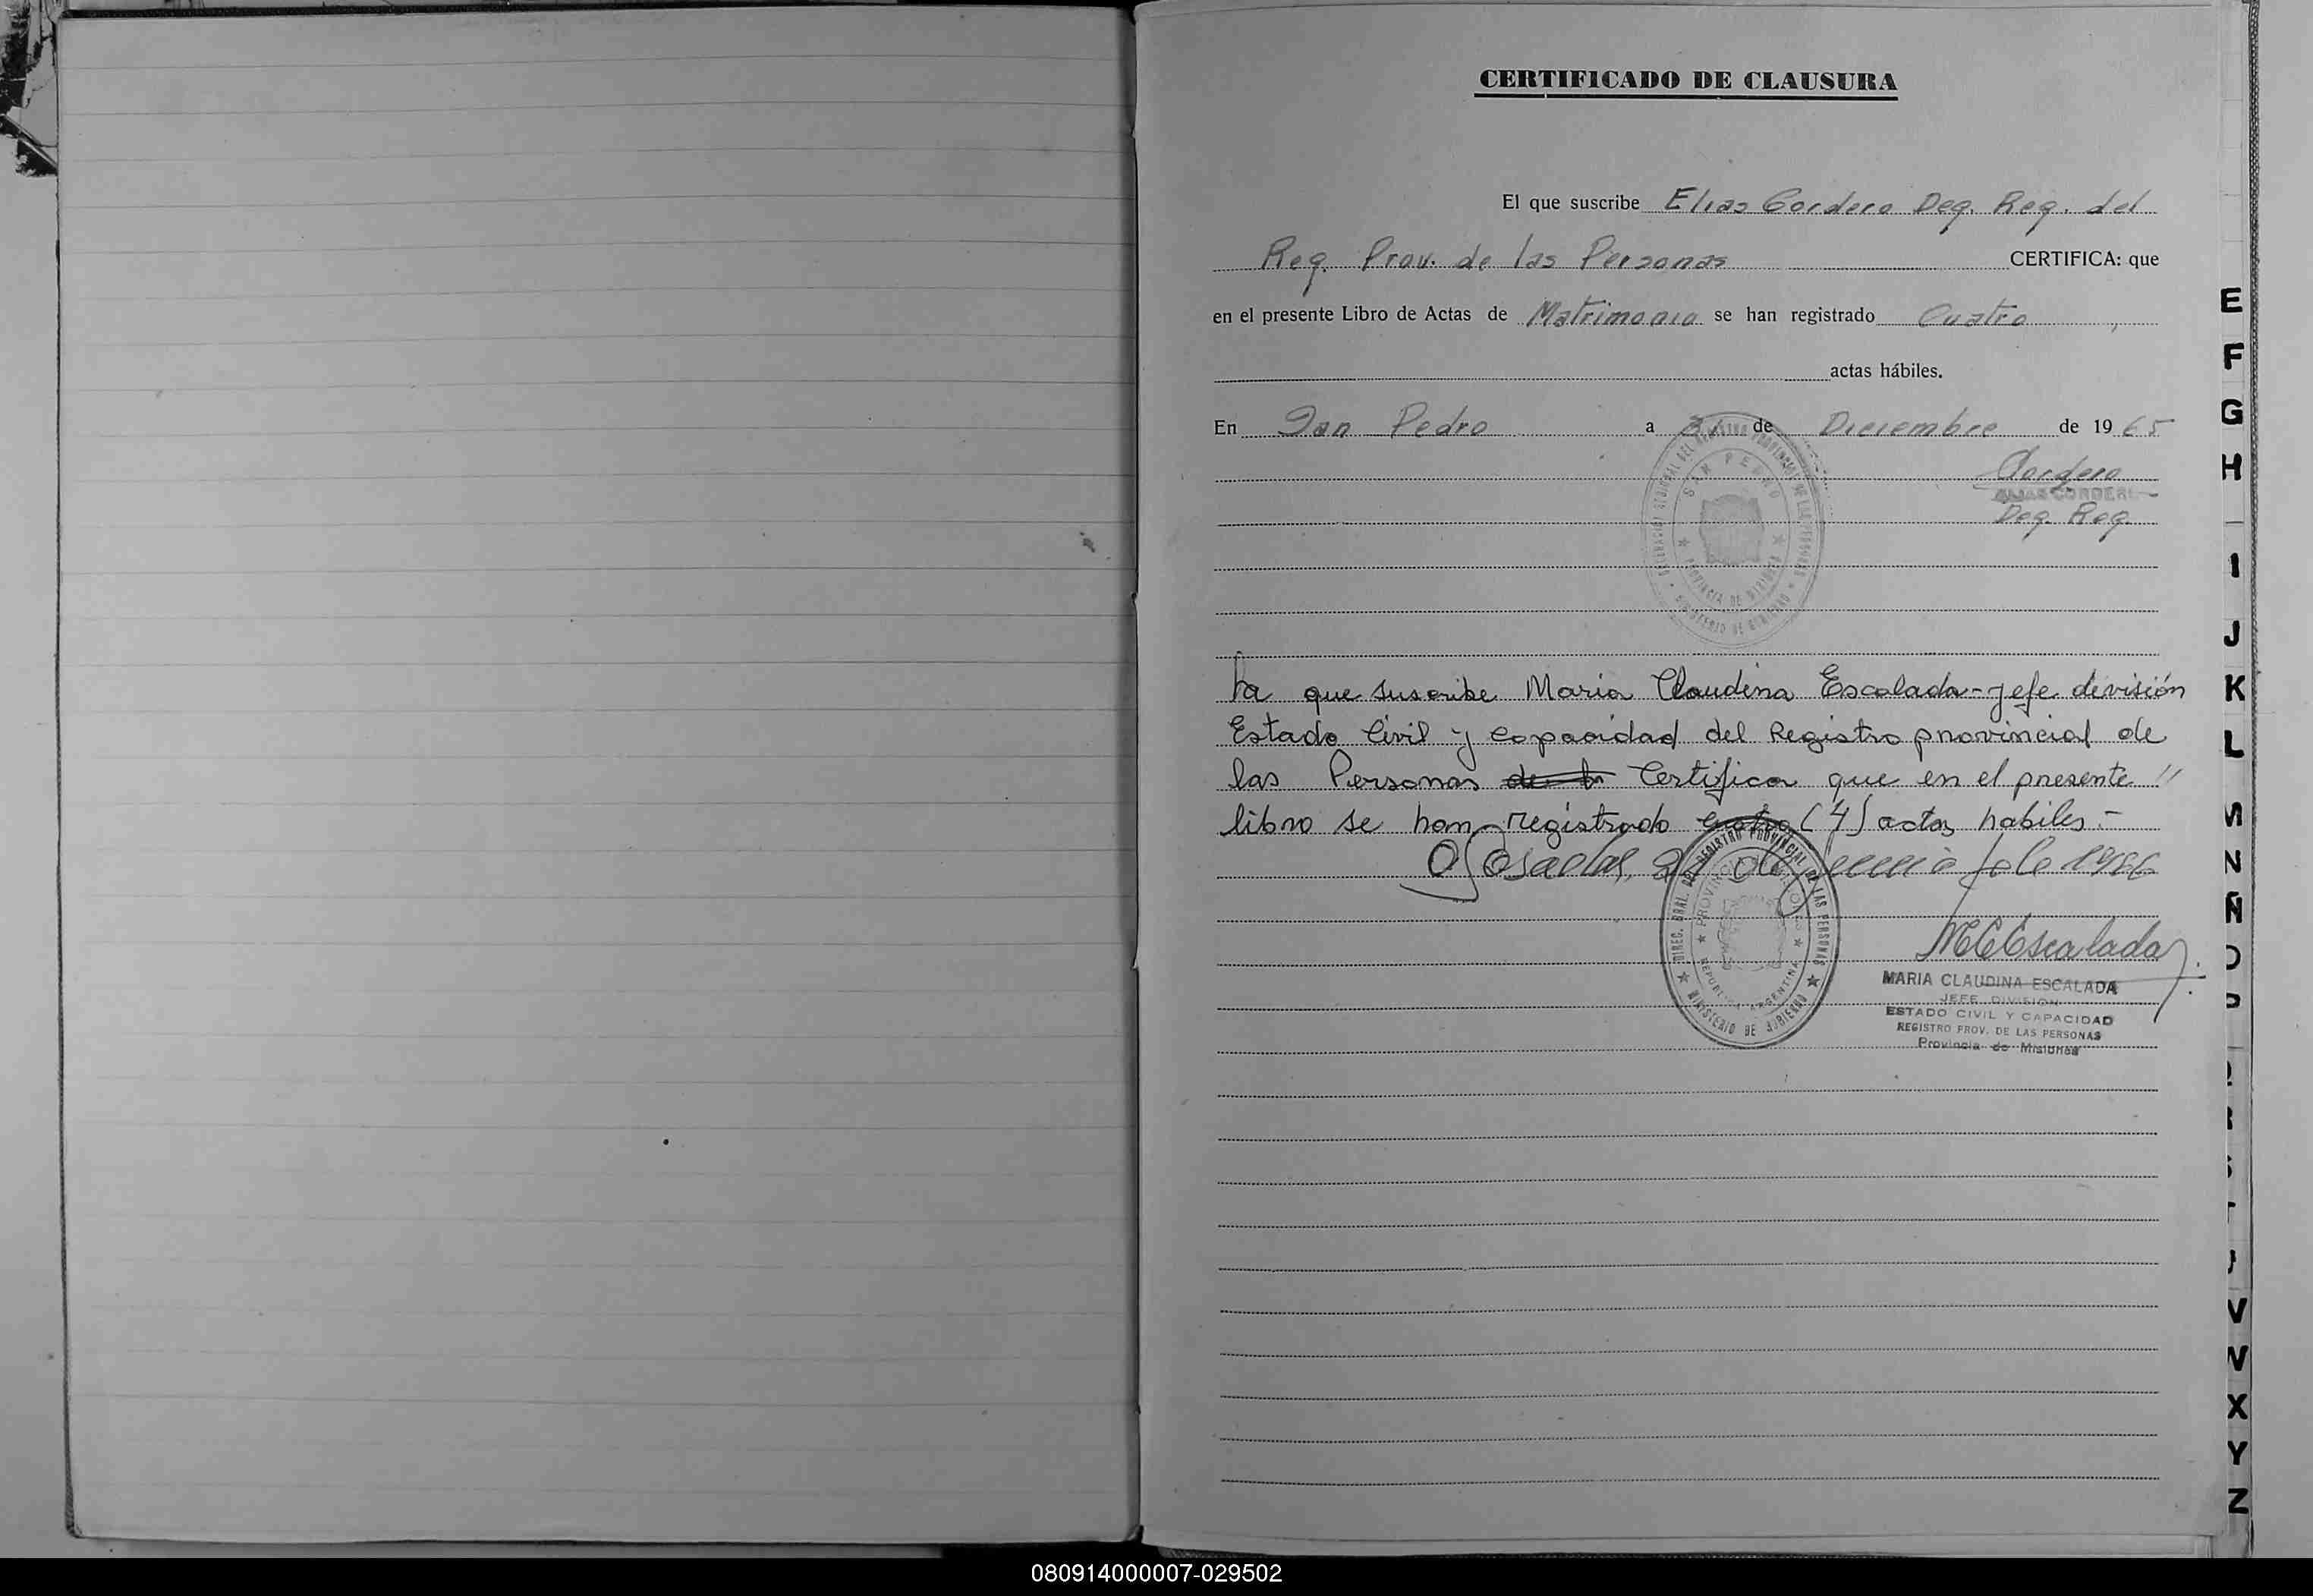 CERTIFICADO DE CLAUSURA
El que suscribe Elias Cordero Deg. Reg. del
Reg. Prov. de las Personas CERTIFICA: que
en el presente Libro de Actas de Matrimonio se han registrado Cuatro
actas hábiles.
En San Pedro a 31 de Diciembre de 19 65
Cordero
ELIAS CORDERO
Deg. Reg.
DELEGACION REGIONAL DEL REGISTRO PROVINCIAL DE LAS PERSONAS
SAN PEDRO
PROVINCIA DE MISIONES
MINISTERIO DE GOBIERNO
La que suscribe Maria Claudina Escalada - jefe división
Estado Civil y capacidad del Registro provincial de
las Personas Certifica que en el presente //
libro se han registrado cuatro (4) actas habiles.-
Posadas, de de 1966
DIREC. GRAL. DEL REGISTRO PROVINCIAL DE LAS PERSONAS
PROVINCIA DE MISIONES
REPUBLICA ARGENTINA
MINISTERIO DE GOBIERNO
MCEscalada
MARIA CLAUDINA ESCALADA
JEFE DIVISION
ESTADO CIVIL Y CAPACIDAD
REGISTRO PROV. DE LAS PERSONAS
Provincia de Misiones
E
F
G
H
I
J
K
L
M
N
Ñ
O
P
V
W
X
Y
Z
080914000007-029502